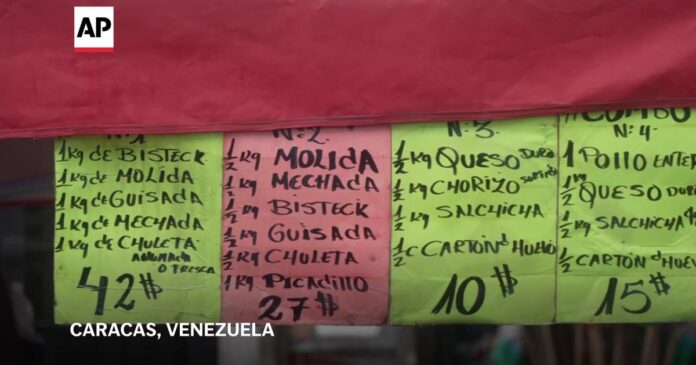 AP
Nº 1
1 Kg de BISTECK
1 Kg de MOLIDA
1 Kg de GUISADA
1 Kg de MECHADA
1 Kg de CHULETA
AHUMADA
O FRESCA
42$
Nº 2
1/2 Kg MOLIDA
1/2 Kg MECHADA
1/2 Kg BISTECK
1/2 Kg GUISADA
1/2 Kg CHULETA
1/2 Kg PICADILLO
27$
Nº 3
1/2 Kg QUESO DURO
1/2 Kg CHORIZO
1/2 Kg SALCHICHA
1/2 CARTÓN d HUEVO
10$
COMBO
Nº 4
1 POLLO ENTER
1/2 Kg QUESO DURO
1/2 Kg SALCHICHA
1/2 CARTÓN d HUEV
15$
CARACAS, VENEZUELA